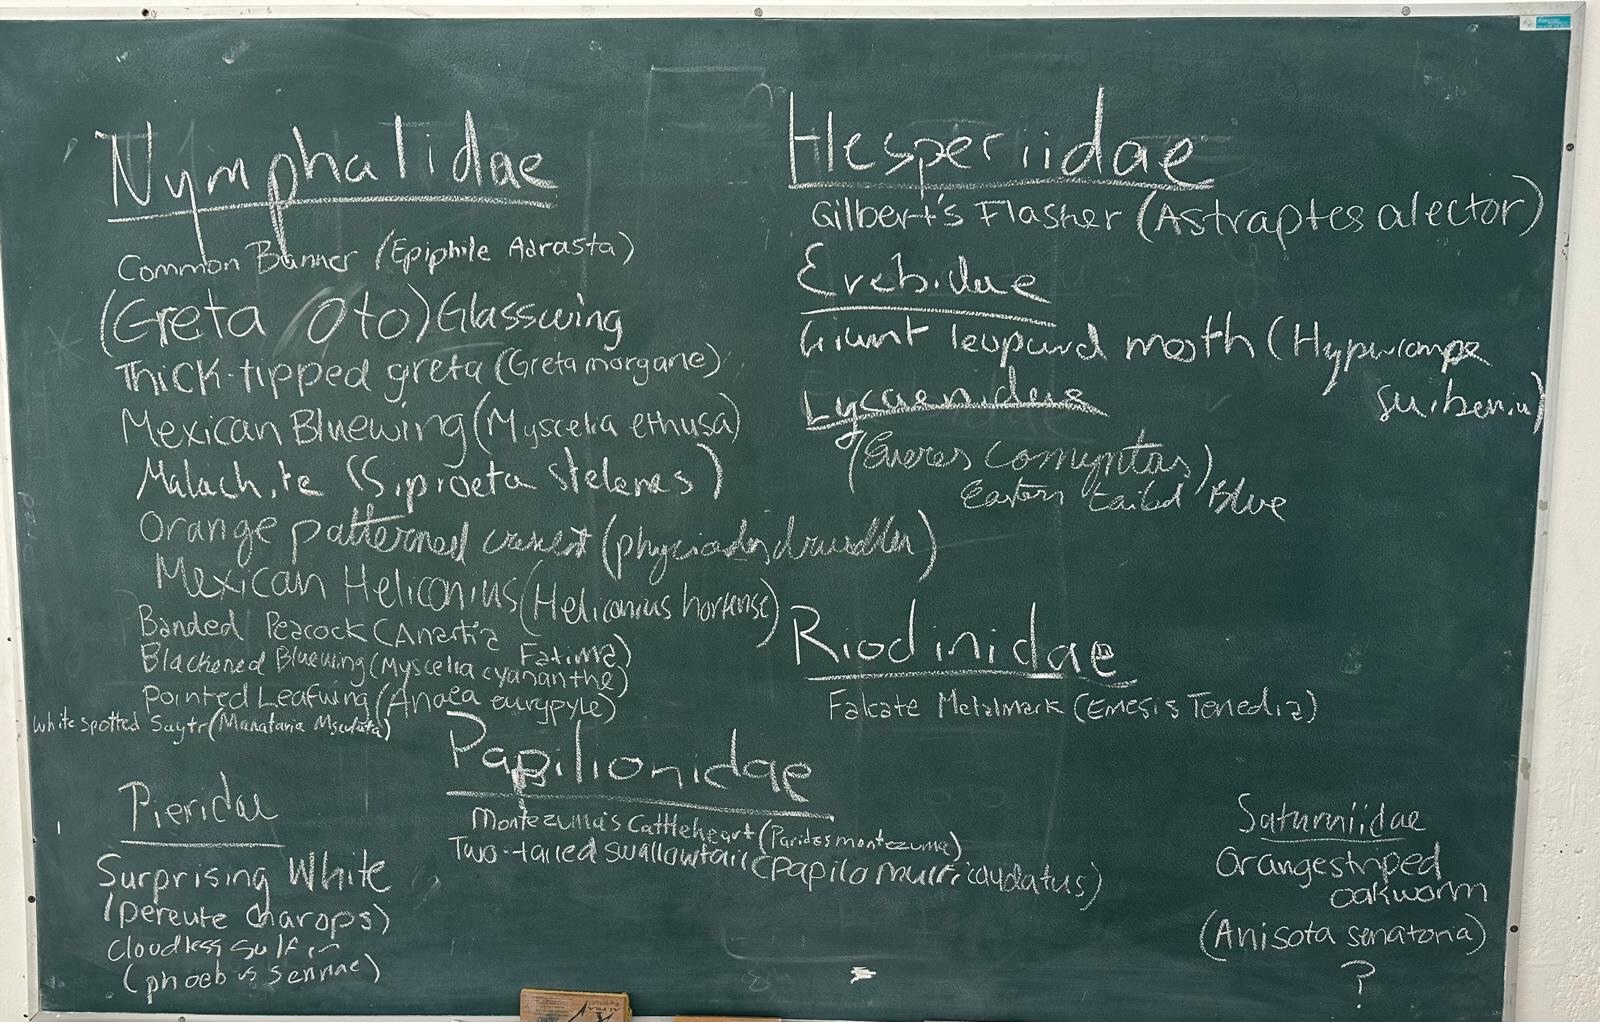 Nymphalidae
Common Banner (Epiphile Adrasta)
(Greta Oto) Glasswing
Thick-tipped greta (Greta morgane)
Mexican Bluewing (Myscelia ethusa)
Malachite (Siproeta stelenes)
Orange patterned cresent (phyciodes
Mexican Heliconius (Heliconius hortense)
Banded Peacock (Anartia
Fatima)
Blackened Bluewing (Myscelia cyananthe)
Pointed Leafwing (Anaea eurypyle)
White spotted Saytr (Manataria
Pieridae
Surprising White
(pereute charops)
Cloudless Sulfur
(phoebus sennae)
Papilionidae
Montezuma's Cattleheart (Parides montezuma)
Two-tailed swallowtail (papilo multicaudatus)
Hesperiidae
Gilbert's Flasher (Astraptes alector)
Erebidae
Giant leopard moth (Hypercompe
Lycaenidae
(Everes comyntas)
Eastern tailed Blue
Riodinidae
Falcate Metalmark (Emesis Tenedia)
Saturniidae
Orangestriped
oakworm
(Anisota senatoria)
?